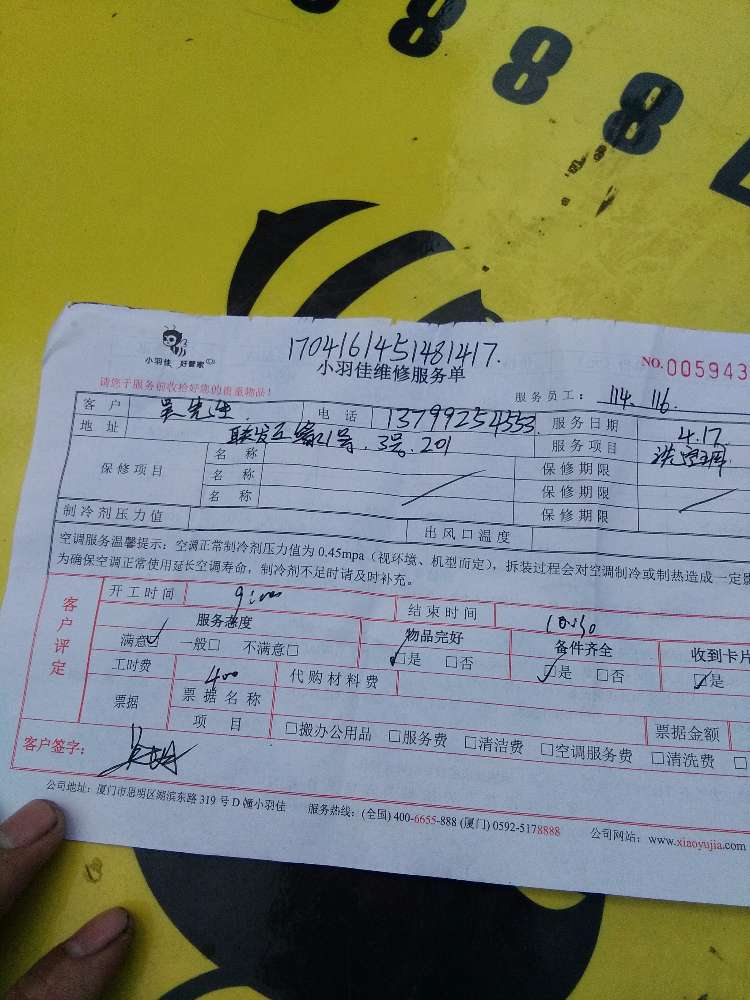 8888
小羽佳 好管家
1704161451481417.
小羽佳维修服务单
NO.005943
请您于服务前收拾好您的贵重物品！
服务员工：114、116.
客户 吴先生. 电话 13799254553. 服务日期 4.17
地址 21号.3号.201 服务项目 洗空调
保修项目 名称 保修期限
名称 保修期限
名称 保修期限
制冷剂压力值 出风口温度
空调服务温馨提示：空调正常制冷剂压力值为 0.45mpa（视环境、机型而定），拆装过程会对空调制冷或制热造成一定影
为确保空调正常使用延长空调寿命，制冷剂不足时请及时补充。
客户评定
开工时间 9:00 结束时间 10:30
服务态度 物品完好 备件齐全 收到卡片
满意☑ 一般□ 不满意□ ☑是 □否 ☑是 □否 ☑是
工时费 400 代购材料费
票据 票据名称 票据金额
项目 □搬办公用品 □服务费 □清洁费 □空调服务费 □清洗费 □
客户签字：
公司地址：厦门市思明区湖滨东路 319 号 D 幢小羽佳 服务热线：(全国) 400-6655-888 (厦门) 0592-5178888 公司网站：www.xiaoyujia.com